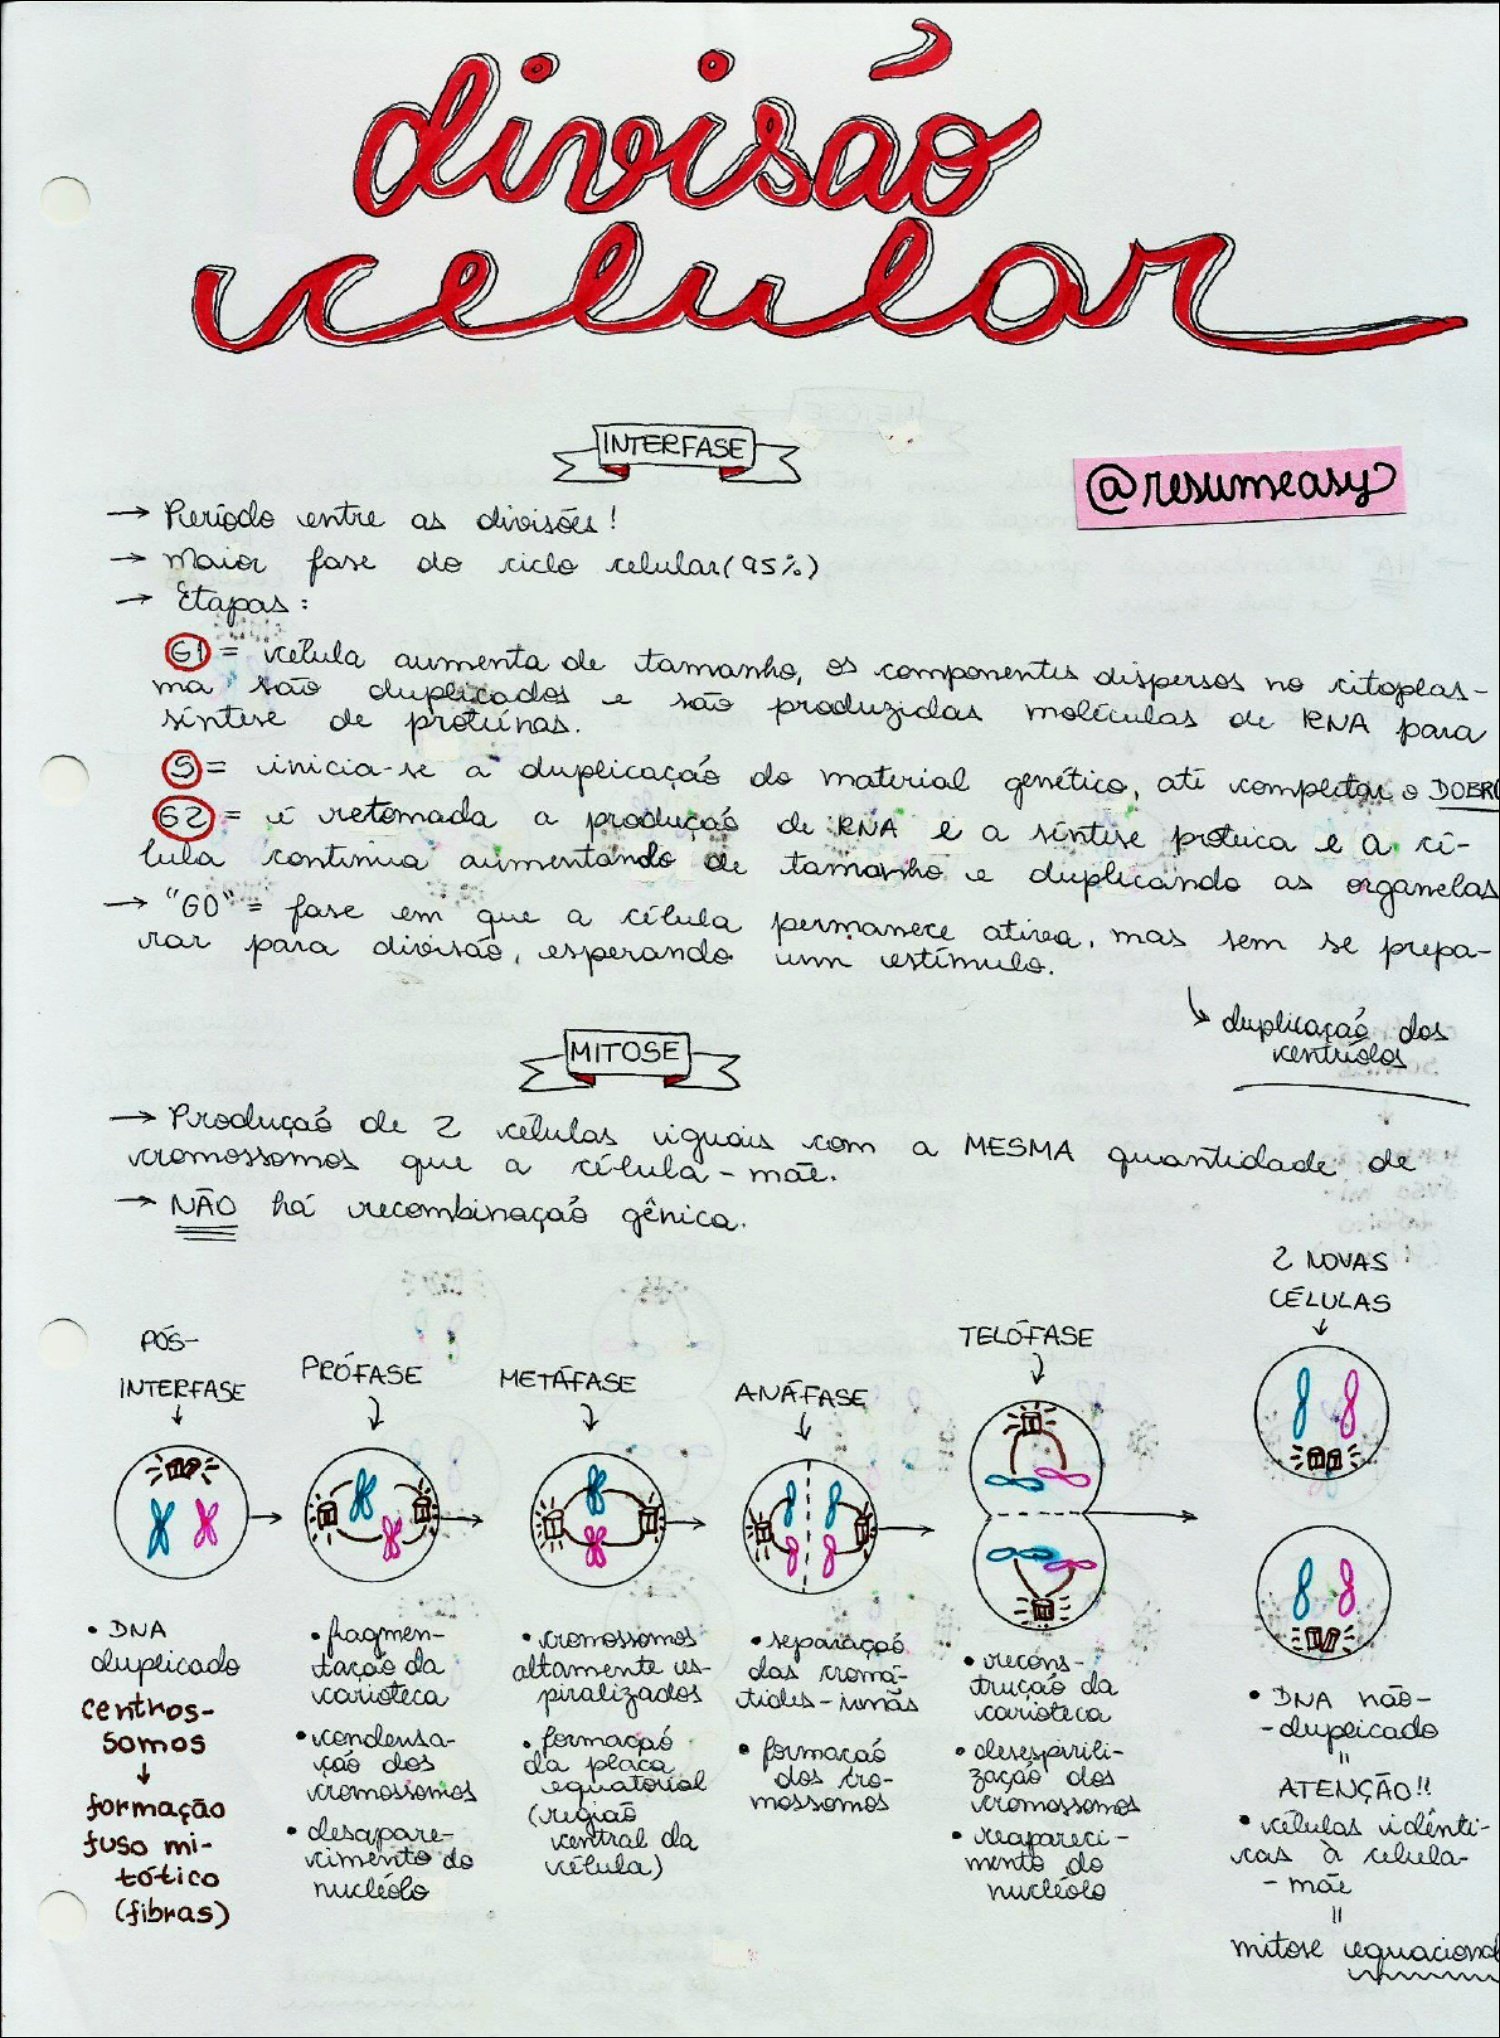 divisão
celular
INTERFASE
@resumeasy
→ Período entre as divisões!
→ Maior fase do ciclo celular (95%)
→ Etapas:
G1 = célula aumenta de tamanho, os componentes dispersos no citoplas-
ma são duplicados e são produzidas moléculas de RNA para
síntese de proteínas.
S = inicia-se a duplicação do material genético, até completar o DOBRO
G2 = é retomada a produção de RNA e a síntese proteica e a cé-
lula continua aumentando de tamanho e duplicando as organelas
→ "G0" = fase em que a célula permanece ativa, mas sem se prepa-
rar para divisão, esperando um estímulo.
↳ duplicação dos
centríolos
MITOSE
→ Produção de 2 células iguais com a MESMA quantidade de
cromossomos que a célula-mãe.
→ NÃO há recombinação gênica.
PÓS-
INTERFASE
PRÓFASE
METÁFASE
ANÁFASE
TELÓFASE
2 NOVAS
CÉLULAS
• DNA
duplicado
centros-
somos
↓
formação
fuso mi-
tótico
(fibras)
• fragmen-
tação da
carioteca
• condensa-
ção dos
cromossomos
• desapare-
cimento do
nucléolo
• cromossomos
altamente es-
piralizados
• formação
da placa
equatorial
(região
central da
célula)
• separação
das cromá-
tides-irmãs
• formação
dos cro-
mossomos
• recons-
trução da
carioteca
• desespirili-
zação dos
cromossomos
• reapareci-
mento do
nucléolo
• DNA não-
-duplicado
"
ATENÇÃO!!
• células idênti-
cas à celula-
-mãe
"
mitose equacional